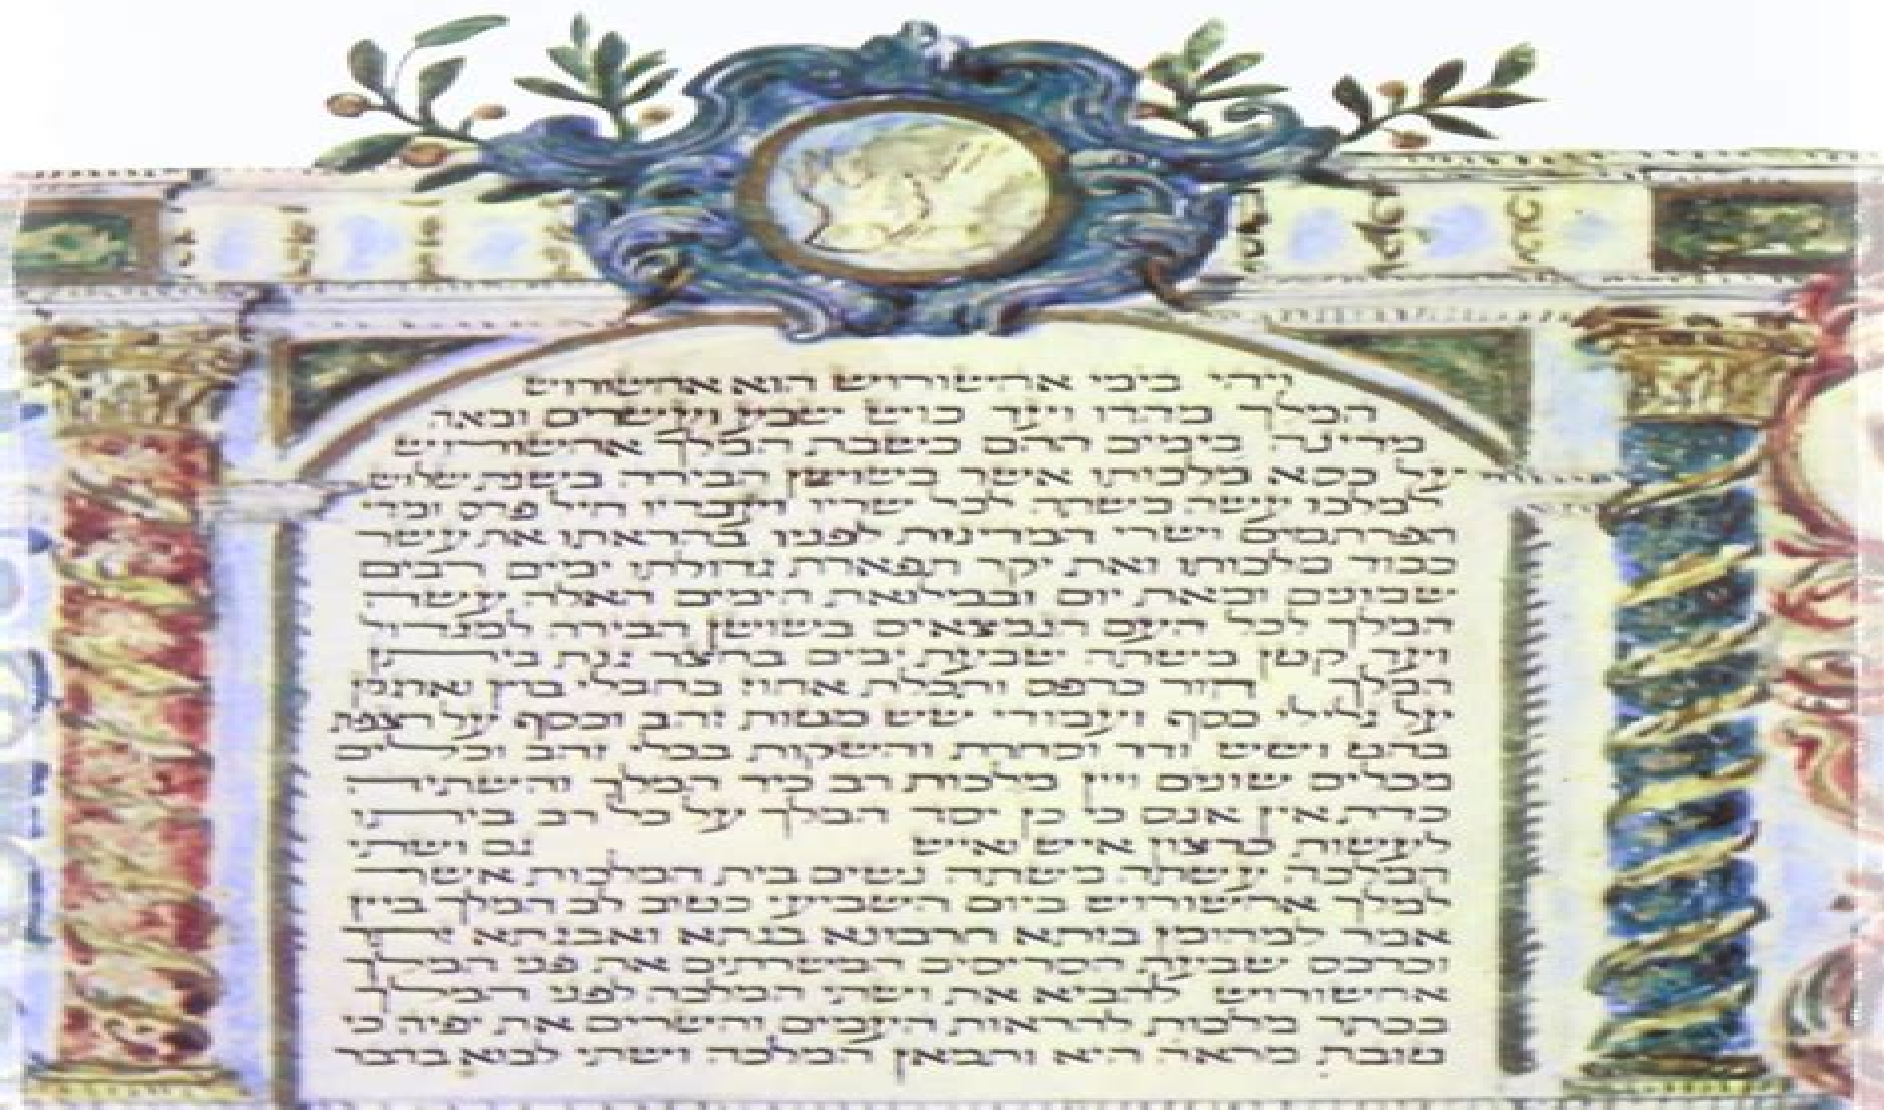 ויהי בימי אחשורוש הוא אחשורוש
המלך מהדו ועד כוש שבע ועשרים ומאה
מדינה בימים ההם כשבת המלך אחשורוש
על כסא מלכותו אשר בשושן הבירה בשנת שלוש
למלכו עשה משתה לכל שריו ועבדיו חיל פרס ומדי
הפרתמים ושרי המדינות לפניו בהראתו את עשר
כבוד מלכותו ואת יקר תפארת גדולתו ימים רבים
שמונים ומאת יום ובמלואת הימים האלה עשה
המלך לכל העם הנמצאים בשושן הבירה למגדול
ועד קטן משתה שבעת ימים בחצר גנת ביתן
המלך חור כרפס ותכלת אחוז בחבלי בוץ
על גלילי כסף ועמודי שש מטות זהב וכסף על רצפת
בהט ושש ודר וסחרת והשקות בכלי זהב וכלים
מכלים שונים ויין מלכות רב כיד המלך והשתיה
כדת אין אנס כי כן יסד המלך על כל רב ביתו
לעשות כרצון איש ואיש גם ושתי
המלכה עשתה משתה נשים בית המלכות אשר
למלך אחשורוש ביום השביעי כטוב לב המלך ביין
אמר למהומן בזתא חרבונא בגתא ואבגתא זתר
וכרכס שבעת הסריסים המשרתים את פני המלך
אחשורוש להביא את ושתי המלכה לפני המלך
בכתר מלכות להראות העמים והשרים את יפיה כי
טובת מראה היא ותמאן המלכה ושתי לבוא בדבר